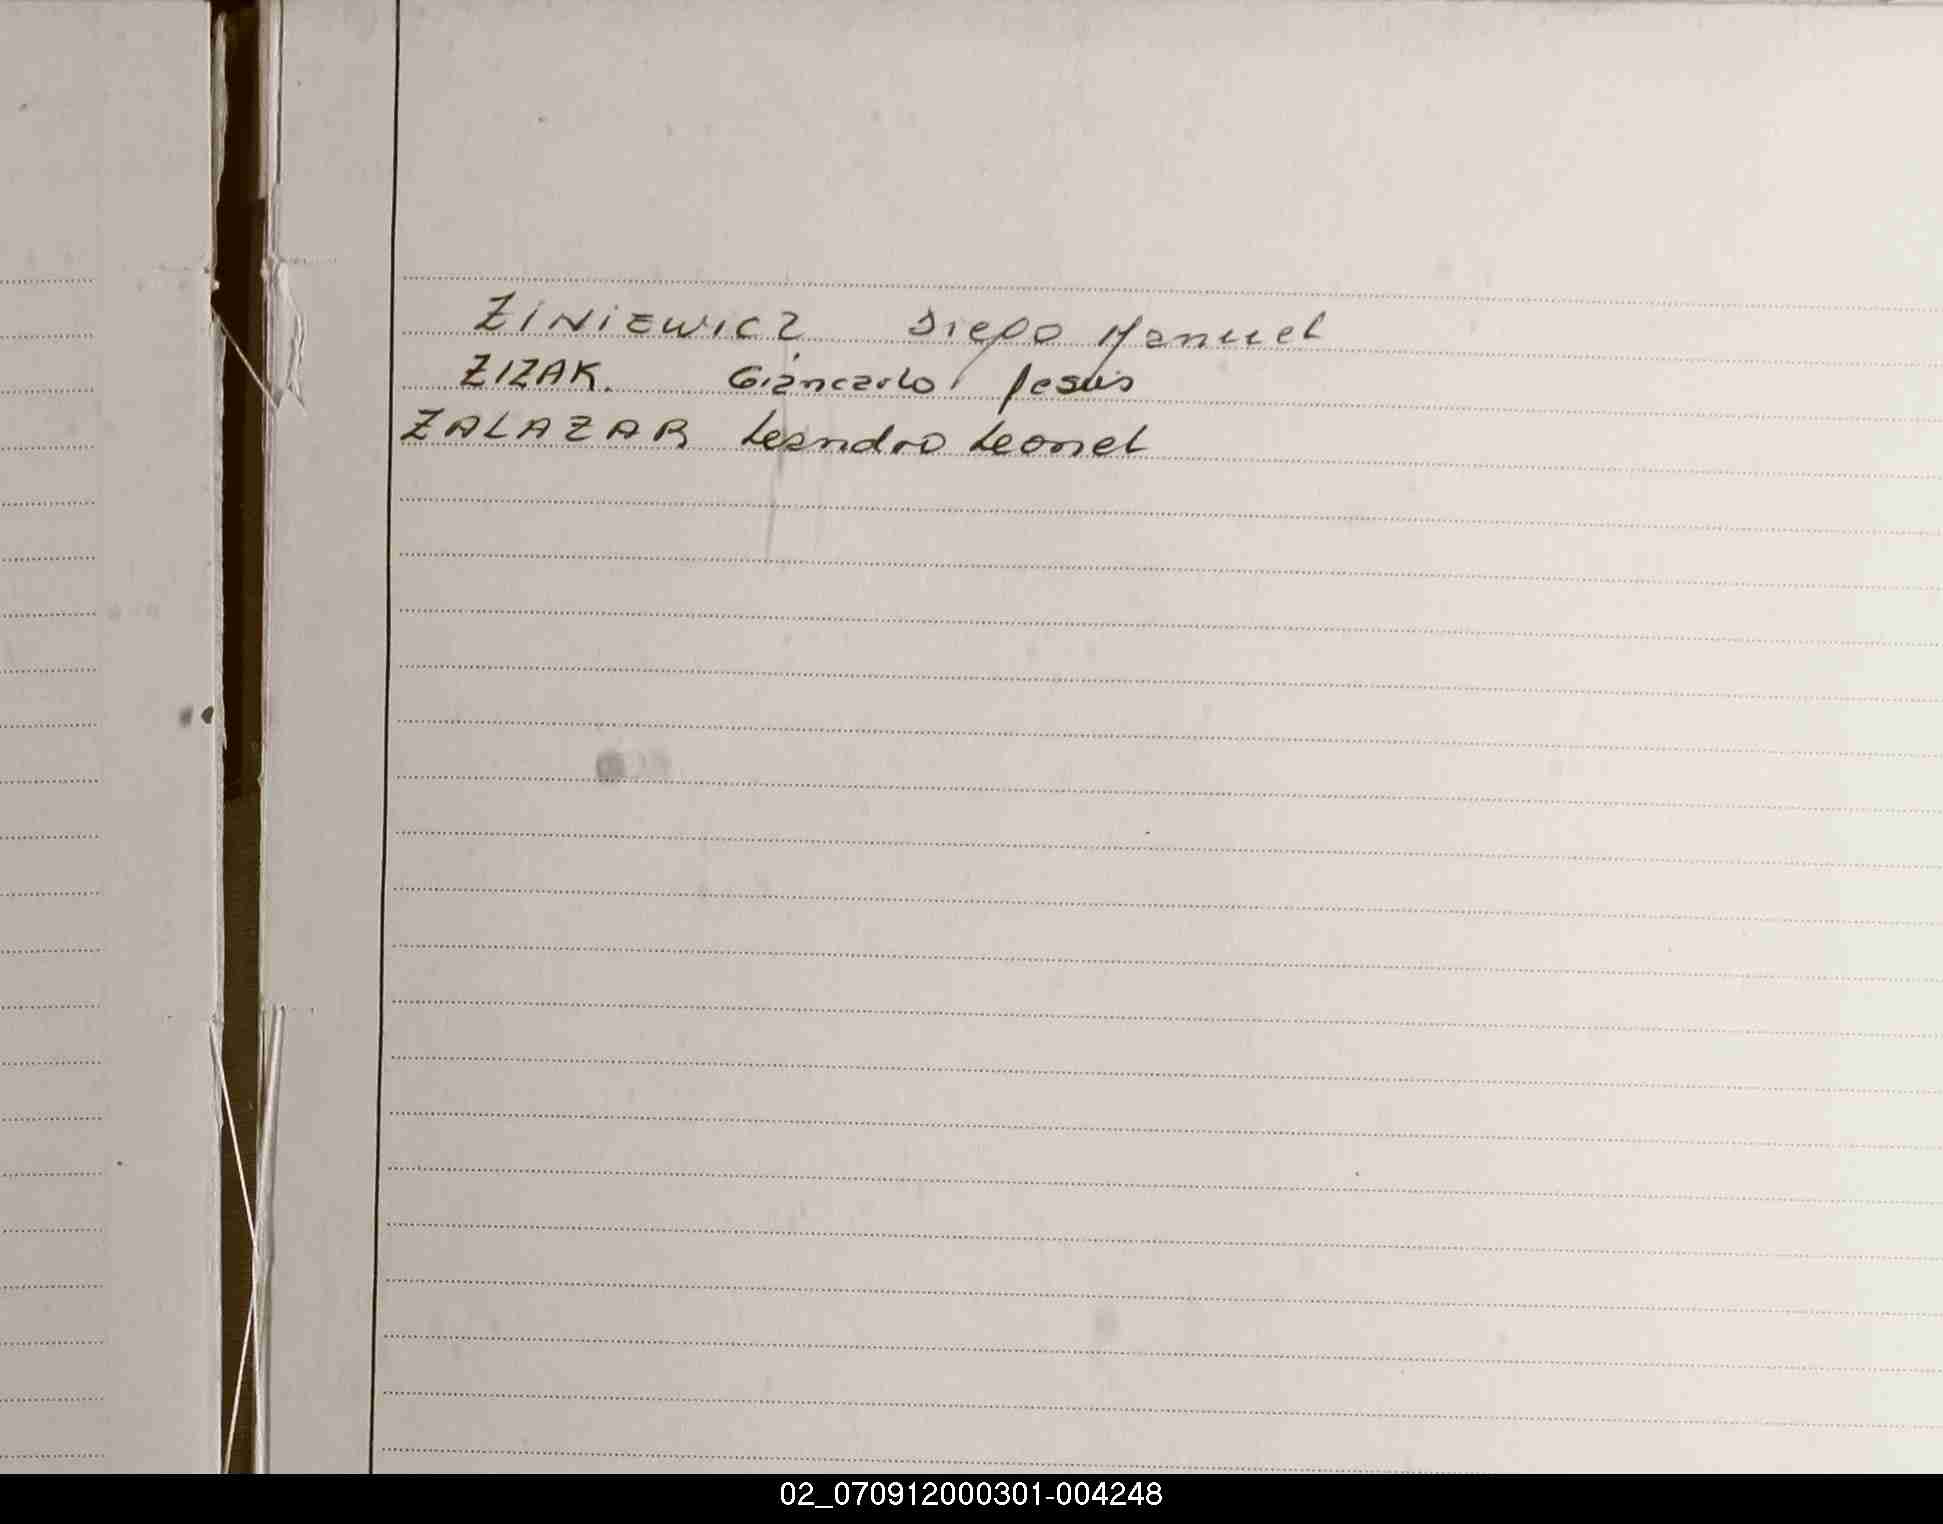 ZINIEWICZ Diego Manuel
ZIZAK. Giancarlo Jesus
ZALAZAR Leandro Leonel
02_070912000301-004248